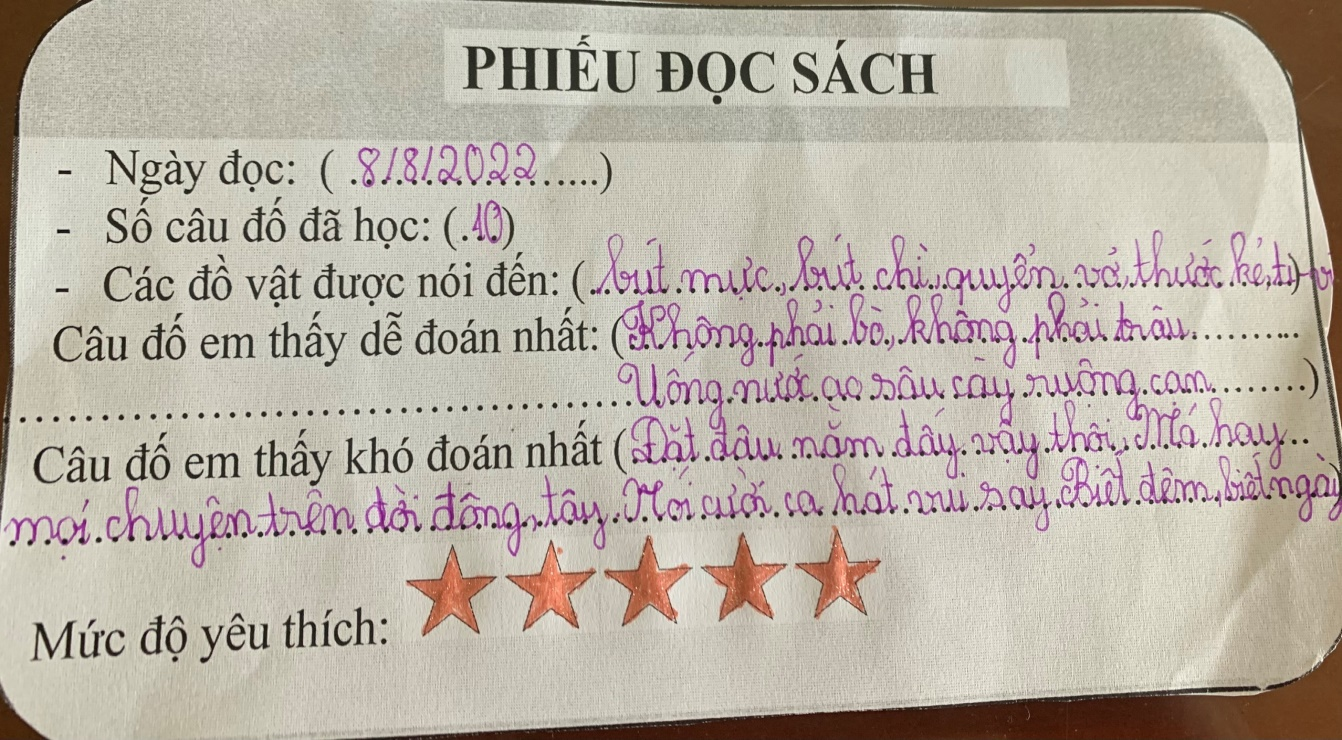 PHIẾU ĐỌC SÁCH
- Ngày đọc: ( .8/8/2022......)
- Số câu đố đã học: (.10)
- Các đồ vật được nói đến: (..bút mực, bút chì, quyển vở, thước kẻ, ti vi
Câu đố em thấy dễ đoán nhất: (Không phải bò, không phải trâu..........
....................................Uống nước ao sâu cày ruộng cạn........)
Câu đố em thấy khó đoán nhất (Đặt đâu nằm đấy vậy thôi, Mà hay..
mọi chuyện trên đời đông, tây. Nói cười ca hát vui say. Biết đêm, biết ngày
Mức độ yêu thích: